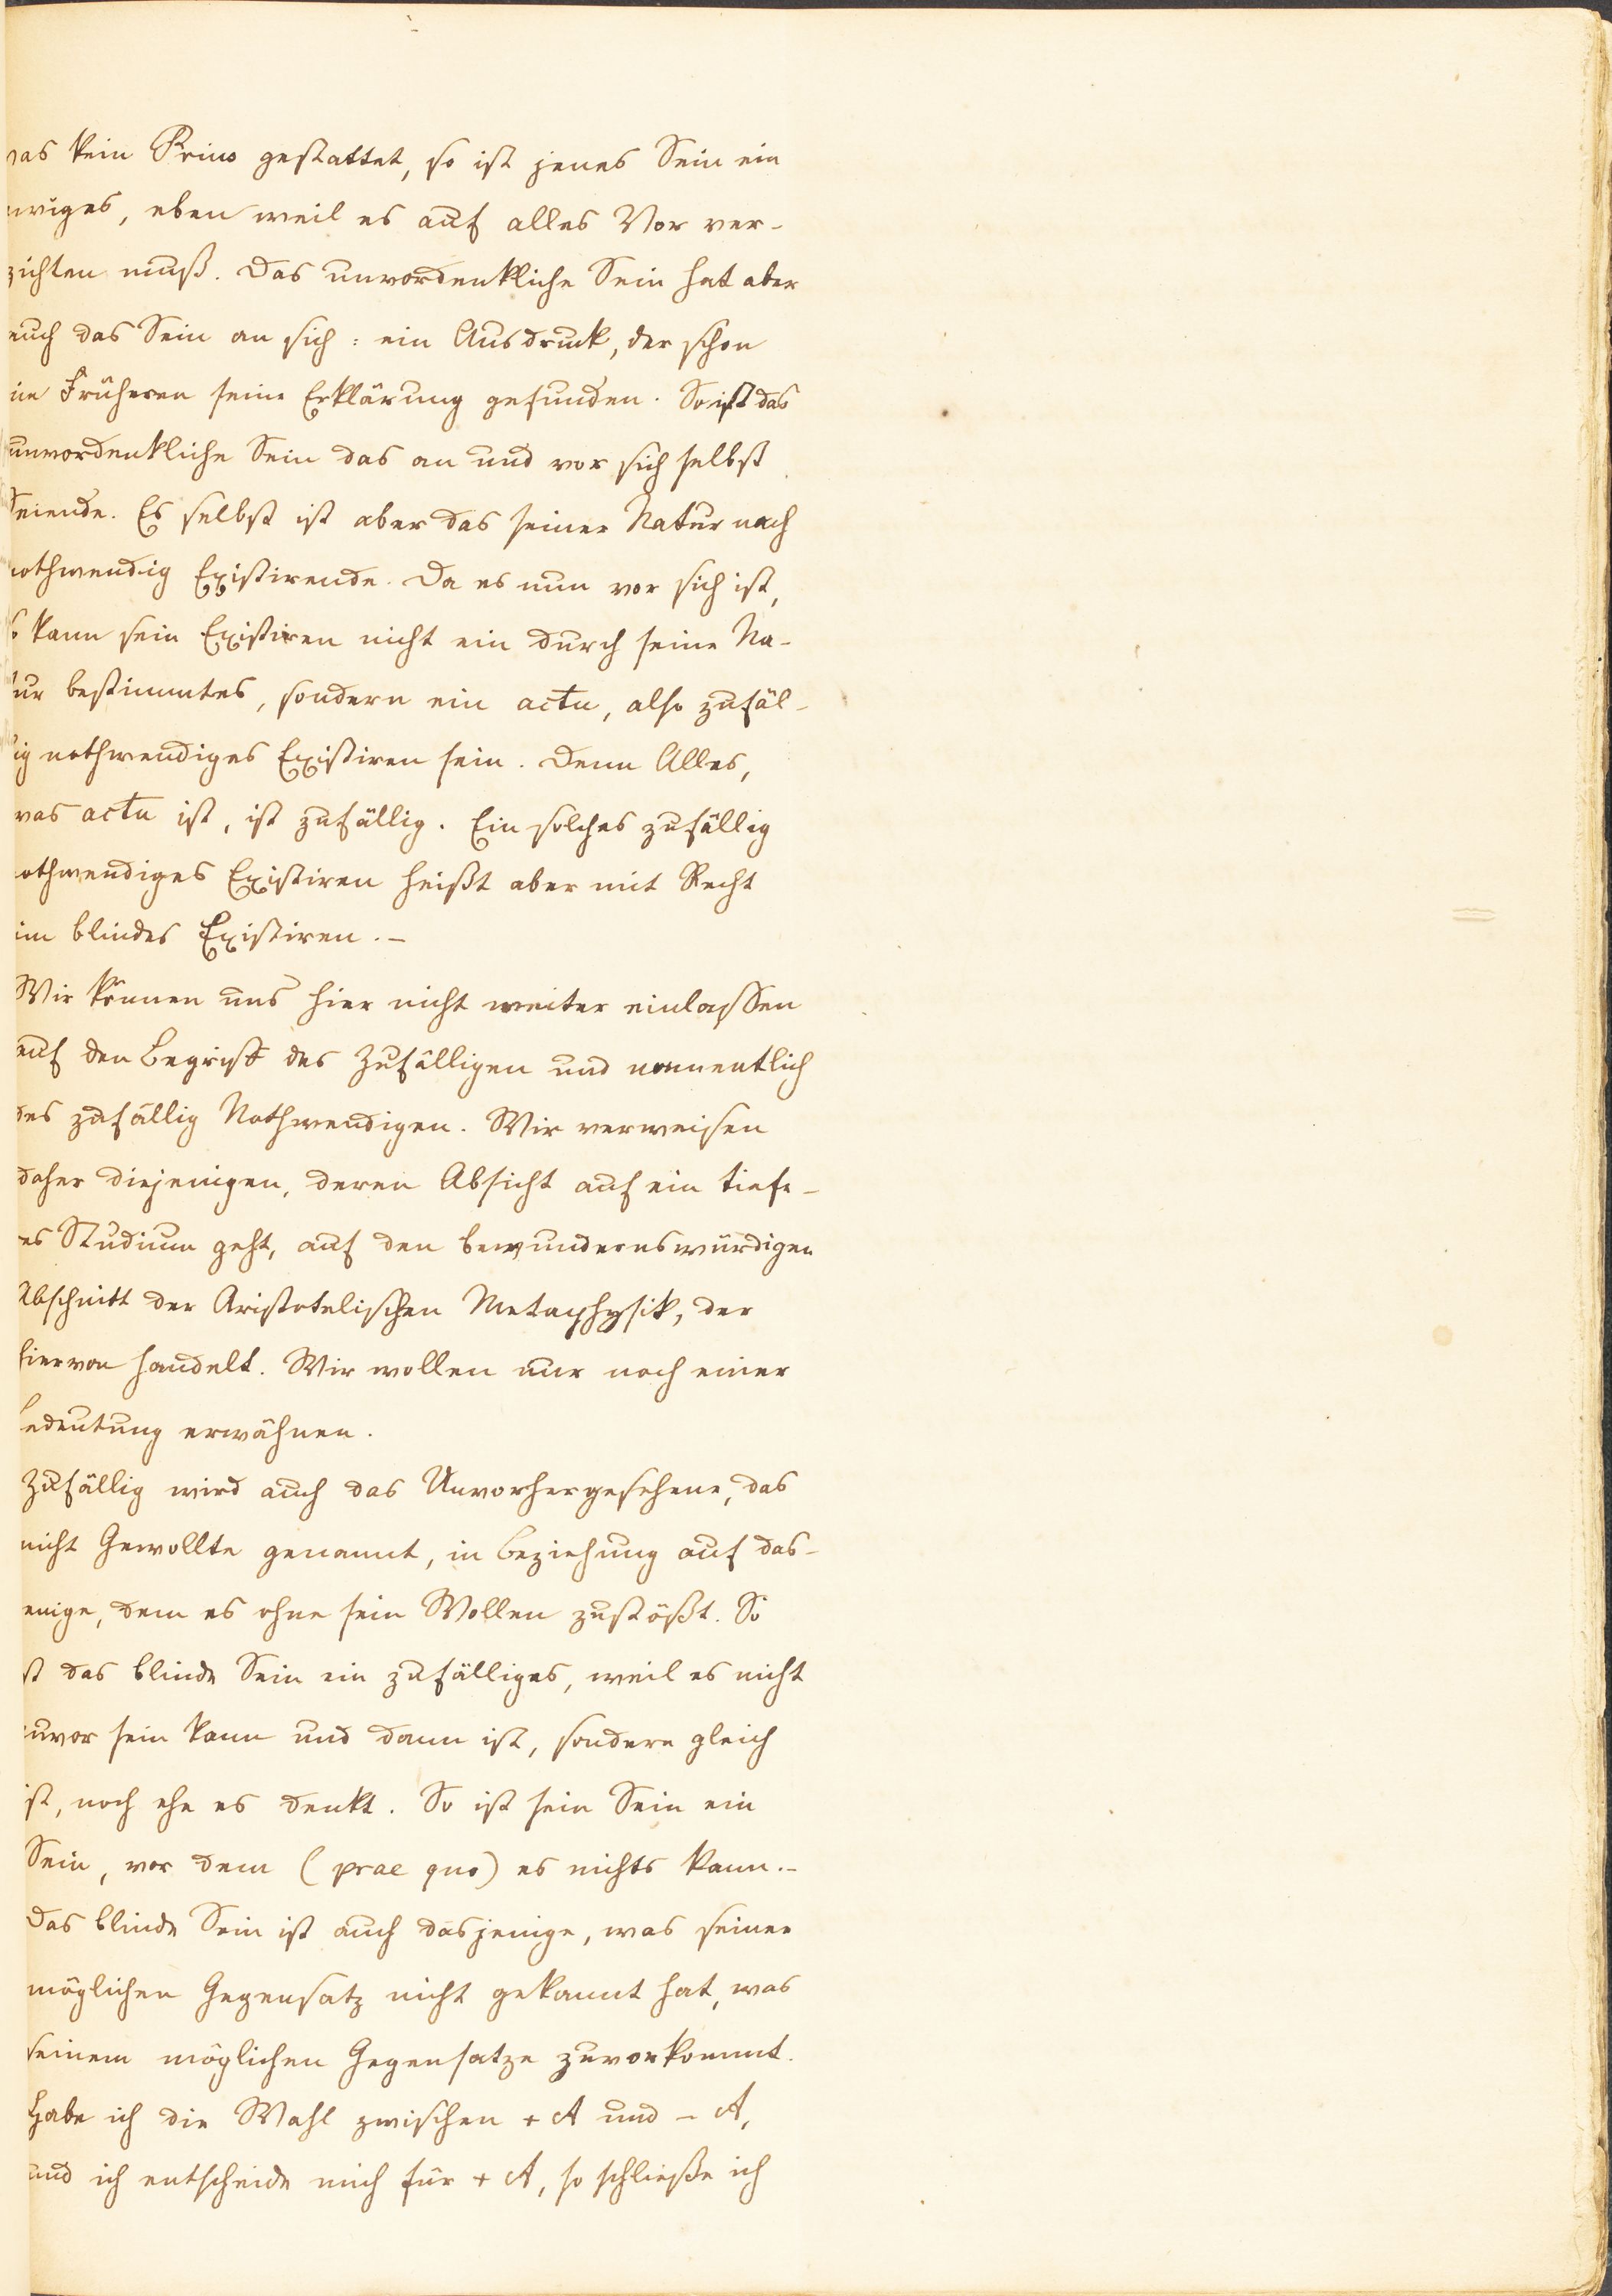 was kein Prius gestattet, so ist jenes Sein ein
ewiges, eben weil es auf alles Vor ver-
zichten muß. Das unvordenkliche Sein hat aber
auch das Sein an sich: ein Ausdruck, der schon
im Früheren seine Erklärung gefunden. So ist das
unvordenkliche Sein das an und vor sich selbst
Seiende. Es selbst ist aber das seiner Natur nach
nothwendig Existirende. Da es nun vor sich ist,
so kann sein Existiren nicht ein durch seine Na-
tur bestimmtes, sondern ein actu, also zufäl-
lig nothwendiges Existiren sein. Denn Alles,
was actu ist, ist zufällig. Ein solches zufällig
nothwendiges Existiren heißt aber mit Recht
ein blindes Existiren.-
Wir können uns hier nicht weiter einlassen
auf den Begriff des Zufälligen und namentlich
des zufällig Nothwendigen. Wir verweisen
daher diejenigen, deren Absicht auf ein tiefe-
res Studium geht, auf den bewundernswürdigen
Abschnitt der Aristotelischen Metaphysik, der
hiervon handelt. Wir wollen nur noch einer
Bedeutung erwähnen.
Zufällig wird auch das Unvorhergesehene, das
nicht Gewollte genannt, in Beziehung auf das-
jenige, dem es ohne sein Wollen zustößt. So
ist das blinde Sein ein zufälliges, weil es nicht
zuvor sein kann und dann ist, sondern gleich
ist, noch ehe es denkt. So ist sein Sein ein
Sein, vor dem (prae quo) es nichts kann.-
Das blinde Sein ist auch dasjenige, was seinen
möglichen Gegensatz nicht gekannt hat, was
seinem möglichen Gegensatze zuvorkommt.
Habe ich die Wahl zwischen + A und - A,
und ich entscheide mich für + A, so schließe ich